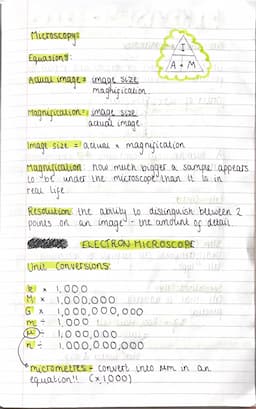 Microscopy:
I
A * M
Equations:
Actual image = image size
magnification
Magnification = image size
actual image
Image size = actual x magnification
Magnification: how much bigger a sample appears
to "be" under the microscope than it is in
real life
Resolution: the ability to distinguish between 2
points on an image - the amount of detail
ELECTRON MICROSCOPE
Unit Conversions:
k x 1,000
M x 1,000,000
G x 1,000,000,000
m ÷ 1,000
μ ÷ 1,000,000
n ÷ 1,000,000,000
micrometres - convert into μm in an
equation!! (x 1,000)